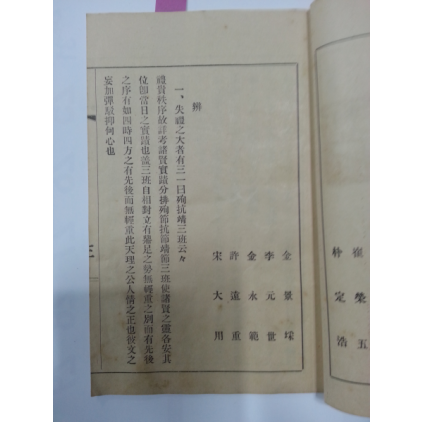 崔榮五
朴定浩
金景埰
李元世
金永範
許遠重
宋大用
辨
一、失禮之大者有三一曰殉抗靖三班云々
禮貴秩序故詳考諸賢實蹟分排殉節抗節靖節三班使諸賢之靈各安其
位卽當日之實蹟也盖三班自相對立有鼎足之勢無輕重之別而有先後
之序有如四時四方之有先後而無輕重此天理之公人情之正也彼文之
妄加彈駁抑何心也
三